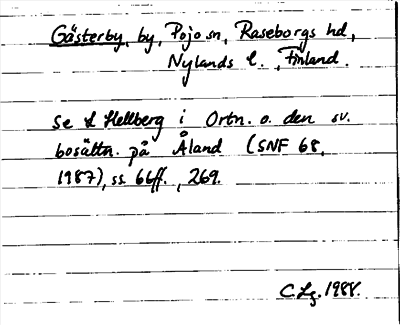 Gästerby, by, Pojo sn, Raseborgs hd,
Nylands l., Finland.
Se L Hellberg i Ortn. o. den sv.
bosättn. på Åland (SNF 68,
1987), ss. 66ff., 269.
C Lg. 1988.